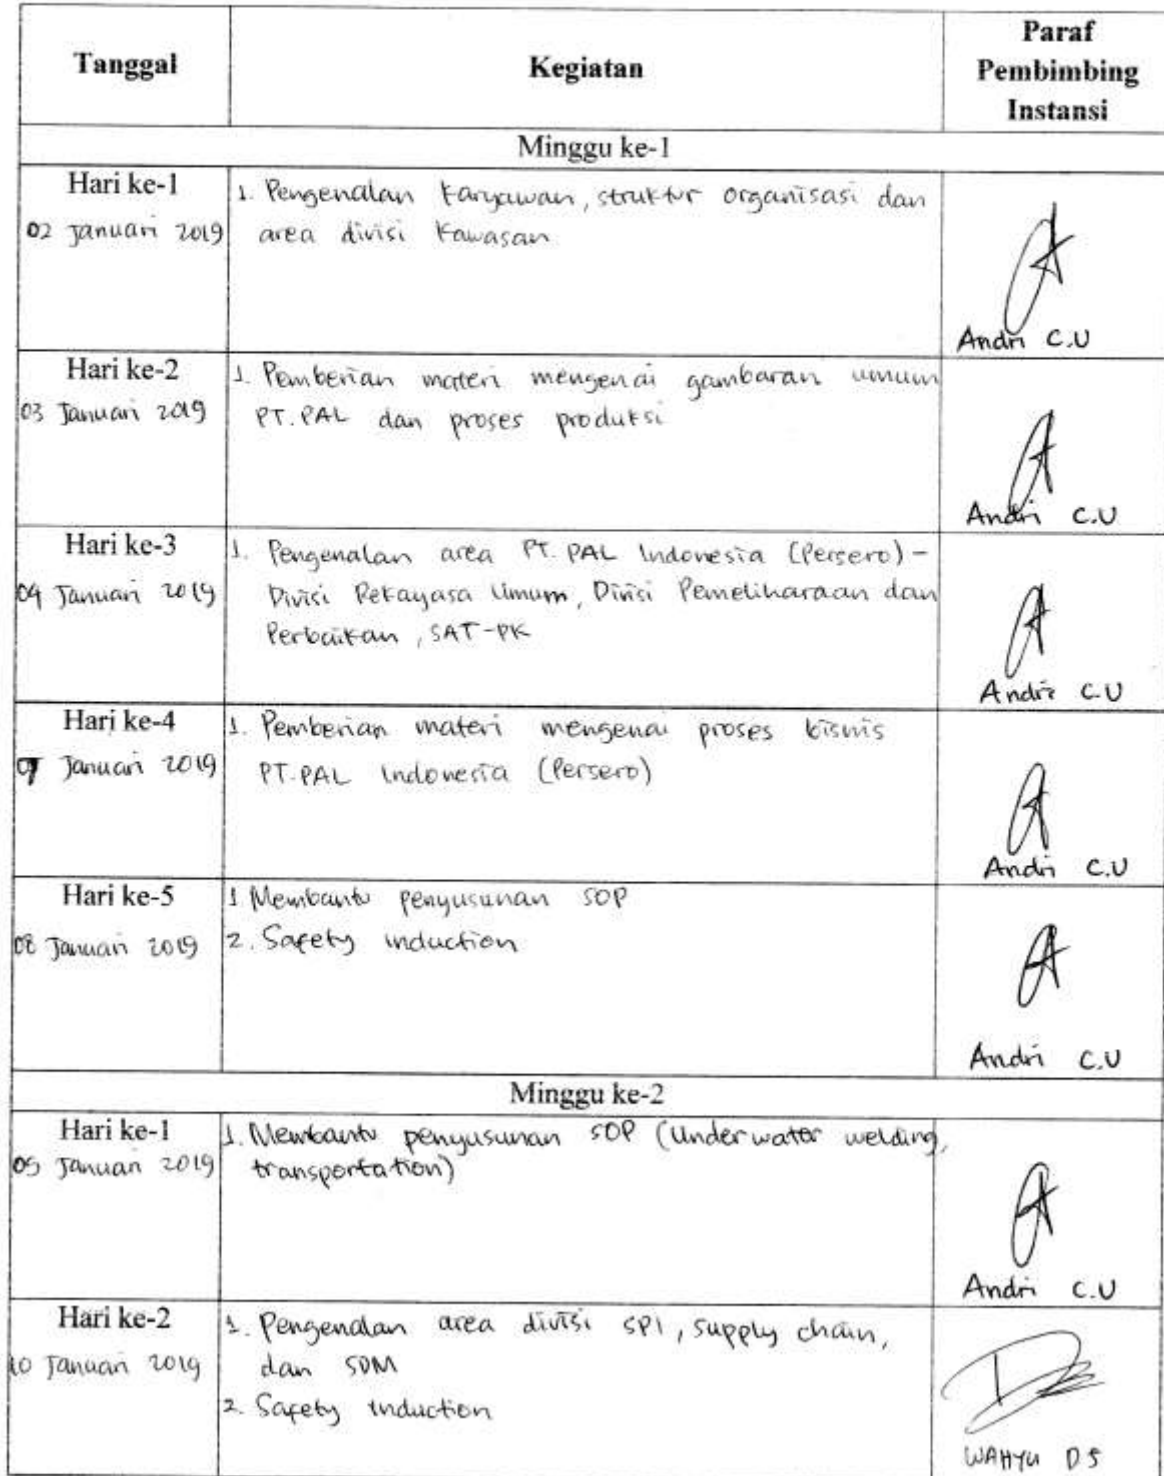 Tanggal
Kegiatan
Paraf
Pembimbing
Instansi
Minggu ke-1
Hari ke-1
02 Januari 2019
1. Pengenalan karyawan, struktur organisasi dan
area divisi kawasan
Andri C.U
Hari ke-2
03 Januari 2019
1. Pemberian materi mengenai gambaran umum
PT. PAL dan proses produksi
Andri C.U
Hari ke-3
04 Januari 2019
1. Pengenalan area PT. PAL Indonesia (Persero) -
Divisi Rekayasa Umum, Divisi Pemeliharaan dan
Perbaikan, SAT-PK
Andri C.U
Hari ke-4
07 Januari 2019
1. Pemberian materi mengenai proses bisnis
PT. PAL Indonesia (Persero)
Andri C.U
Hari ke-5
08 Januari 2019
1. Membantu penyusunan SOP
2. Safety induction
Andri C.U
Minggu ke-2
Hari ke-1
09 Januari 2019
1. Membantu penyusunan SOP (Underwater welding,
transportation)
Andri C.U
Hari ke-2
10 Januari 2019
1. Pengenalan area divisi SPI, supply chain,
dan SDM
2. Safety induction
WAHYU DS